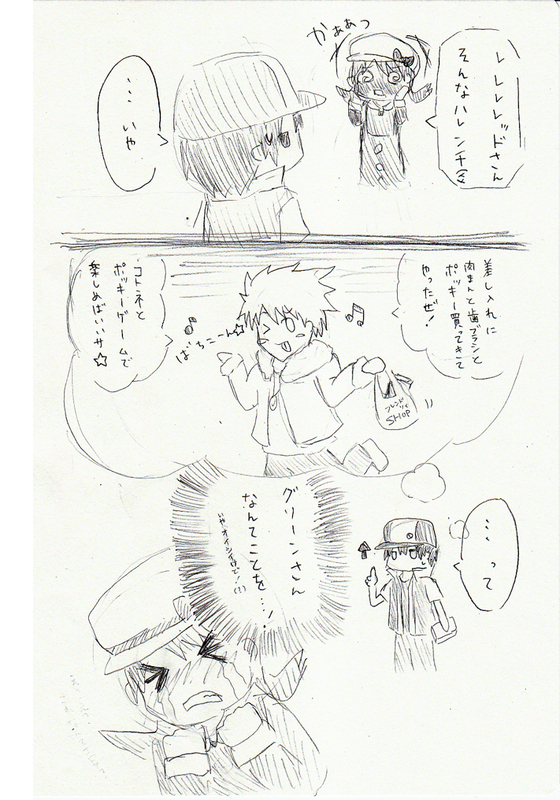 レレレレッドさん
そんなハレンチなっ
かぁぁっ
…いや
差し入れに
肉まんと歯ブラシと
ポッキー買ってきて
やったぜ!
ばちこーん☆
フレンドリィ
SHOP
コトネと
ポッキーゲームで
楽しめばいいサ☆
…って
グリーンさん
なんてことを…!